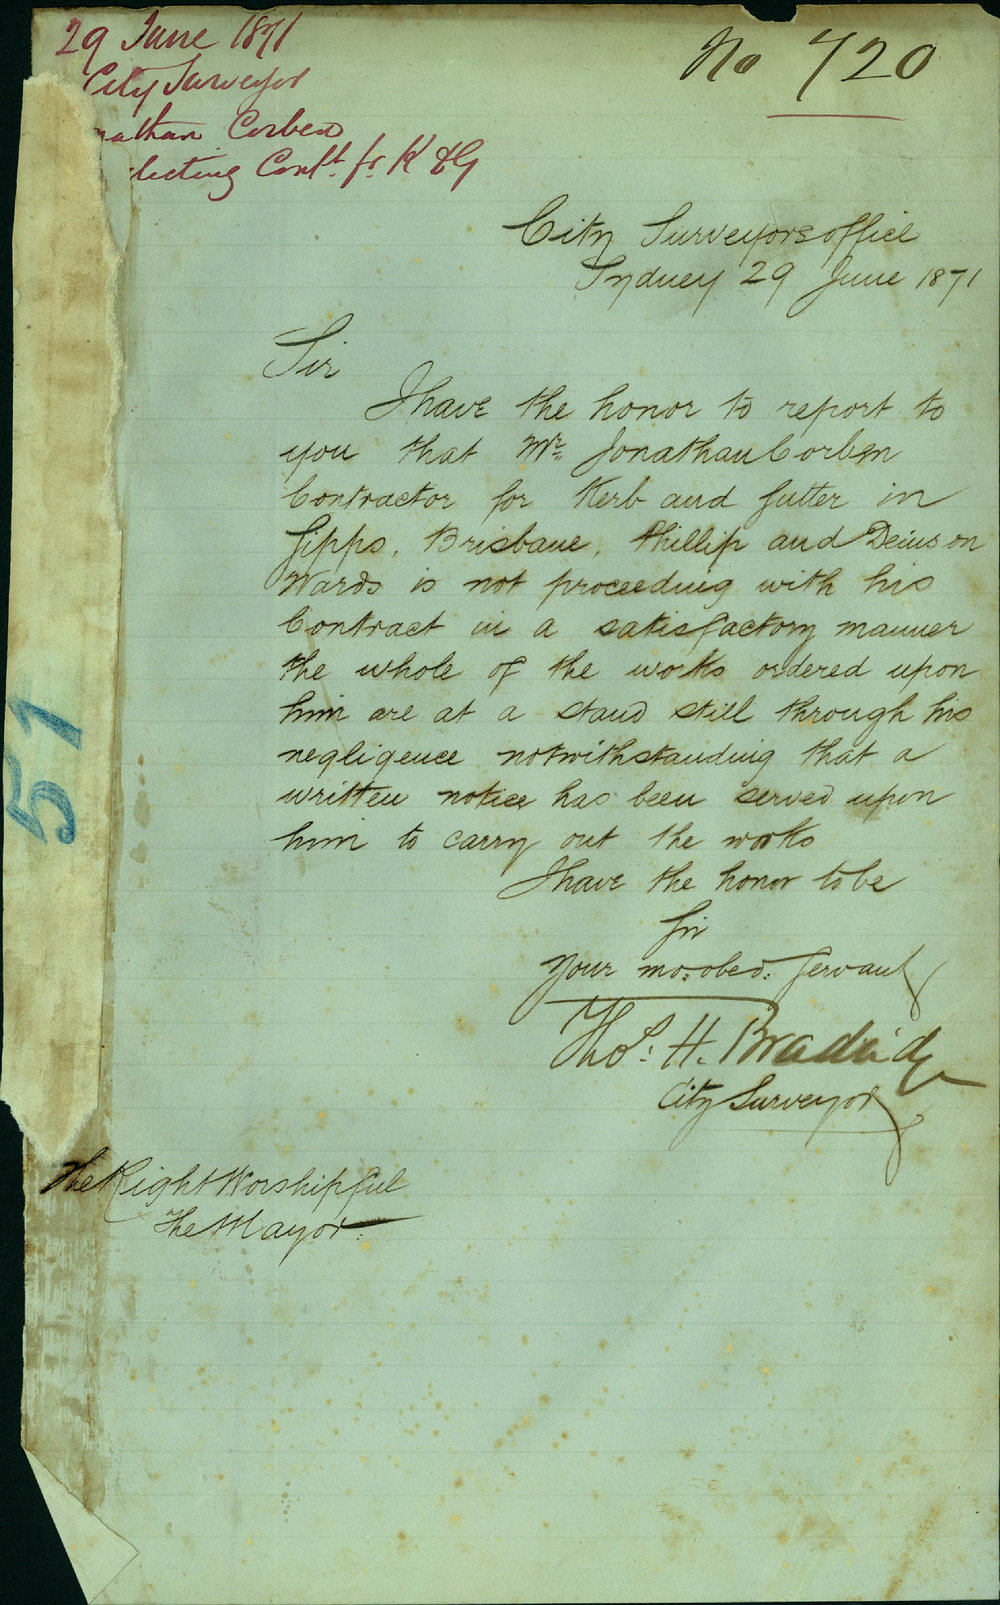 29 June 1871
City Surveyor
nathan Corben
lecting Cont.t fr K & G
No 720
City Surveyors office
Sydney 29 June 1871
Sir
I have the honor to report to
you that Mr. Jonathan Corben
Contractor for Kerb and Gutter in
Gipps, Brisbane, Phillip and Denison
Wards is not proceeding with his
Contract in a satisfactory manner
the whole of the works ordered upon
him are at a stand still through his
negligence notwithstanding that a
written notice has been served upon
him to carry out the works
I have the honor to be
Sir
Your mo: obed: Servant
Thos: H. Bradridge
City Surveyor
The Right Worshipful
The Mayor
51